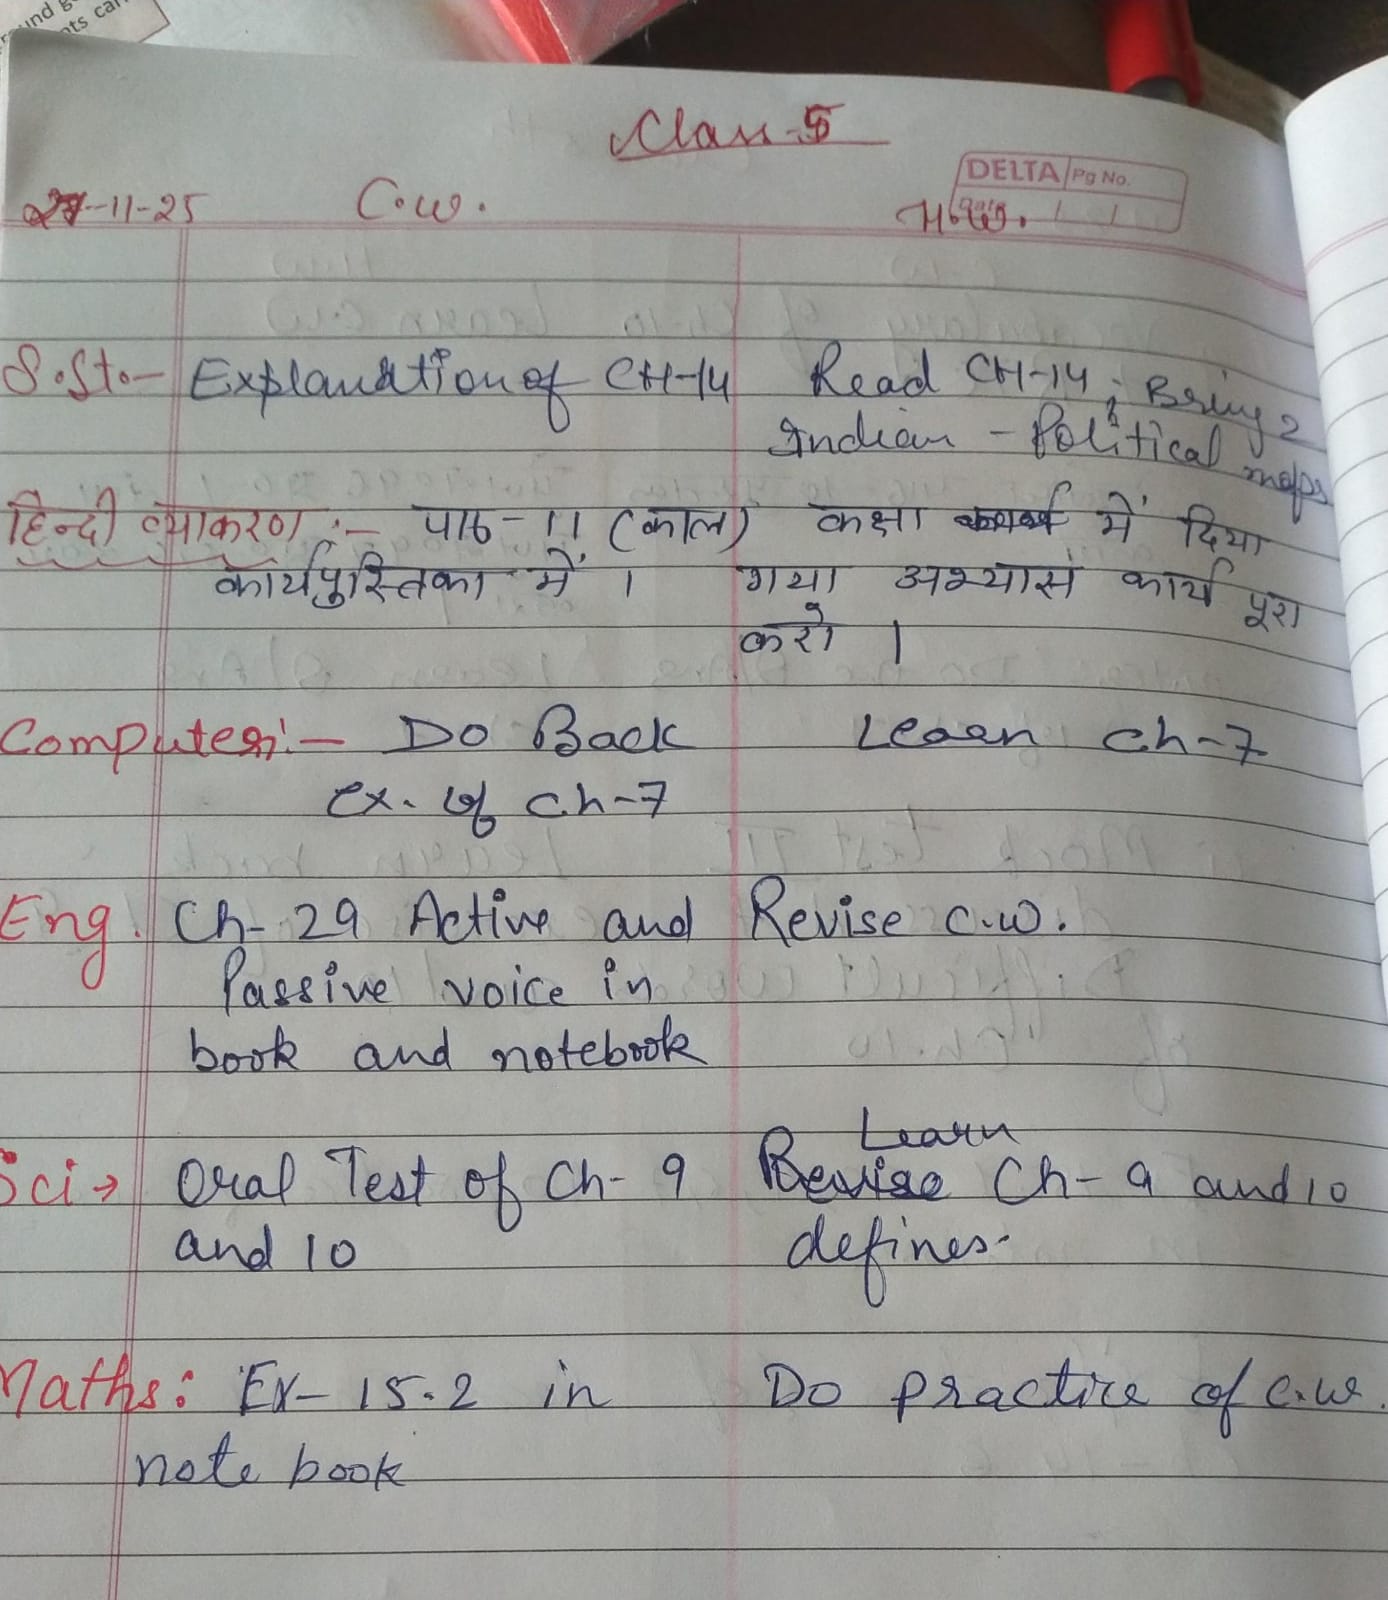 Class-5
27-11-25 C.W. H.W.
DELTA Pg No.
Date / /
S.St.- Explanation of CH-14 Read CH-14; Bring 2
Indian - Political maps
हिन्दी व्याकरण :- पाठ-11 (काल) कक्षा में दिया
कार्यपुस्तिका में । गया अभ्यास कार्य पूरा
करो ।
Computer:- Do Back Learn ch-7
ex. of ch-7
Eng. Ch-29 Active and Revise C.W.
Passive voice in
book and notebook
Learn
Sci→ Oral Test of Ch-9 Revise Ch-9 and 10
and 10 defines.
Maths: Ex-15.2 in Do practice of C.W.
note book